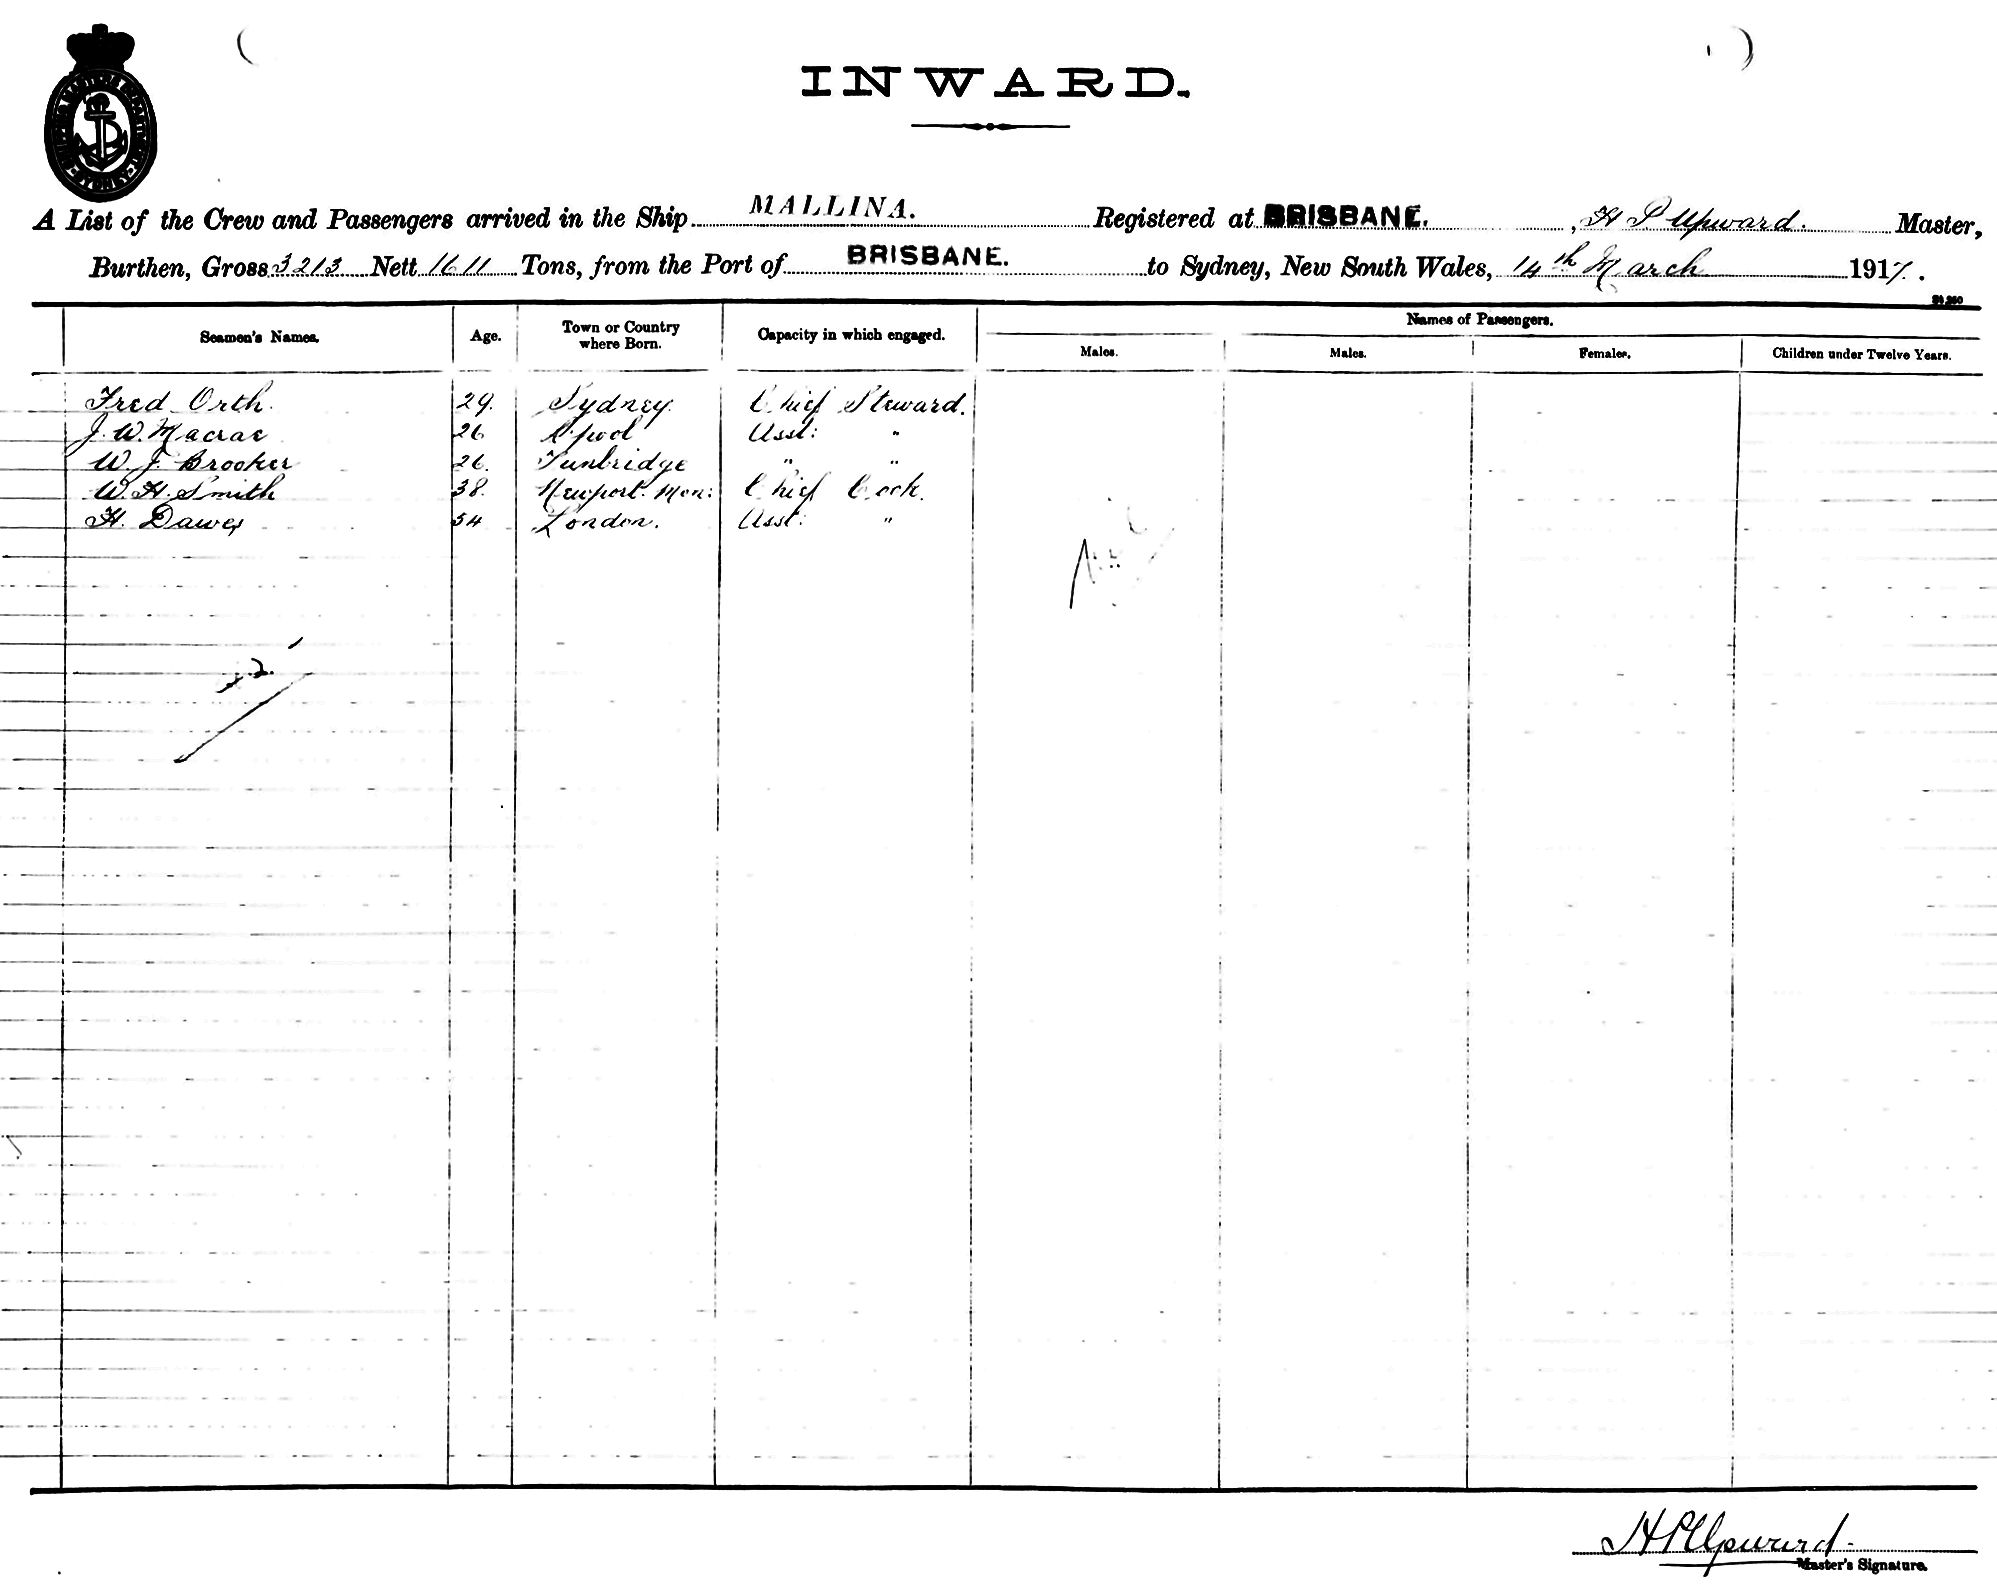 SHIPPING MASTERS DEPARTMENT SYDNEY
INWARD.
A List of the Crew and Passengers arrived in the Ship MALLINA. Registered at BRISBANE. , H P Upward. Master,
Burthen, Gross 3213 Nett 1611 Tons, from the Port of BRISBANE. to Sydney, New South Wales, 14th March 1917.
Seamen's Names. Age. Town or Country where Born. Capacity in which engaged. Names of Passengers.
Males. Males. Females. Children under Twelve Years.
Fred Orth. 29. Sydney. Chief Steward.
J. W. Macrae 26 L'pool Asst: "
W. J. Brooker 26. Tunbridge " "
W. H. Smith 38. Newport. Mon: Chief Cook.
H. Dawes 54 London. Asst: "
Nil
H P Upward.
Master's Signature.